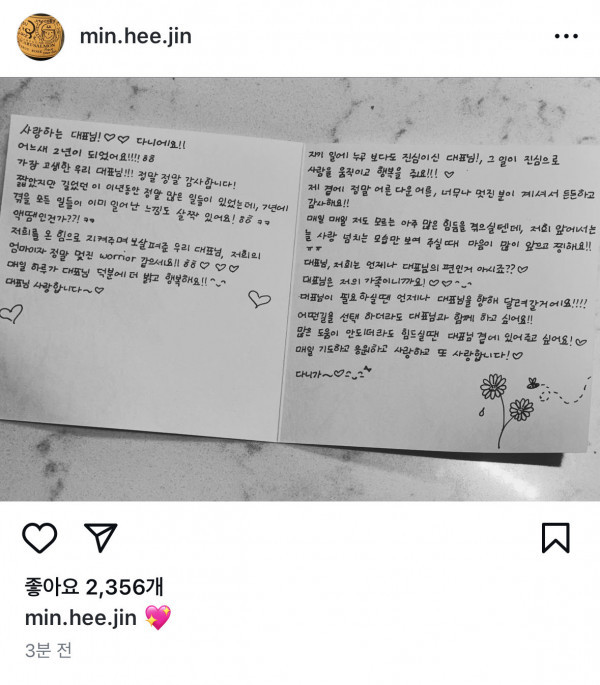 min.hee.jin
사랑하는 대표님! ♡♡ 다니에요!!
어느새 2년이 되었어요!!!! 88
가장 고생한 우리 대표님!!! 정말 정말 감사합니다!
짧았지만 길었던 이 이년동안 정말 많은 일들이 있었는데, 7년에
겪을 모든 일들이 이미 일어난 느낌도 살짝 있어요! 88 ㅋㅋ
액땜인건가??! ㅋㅋ
저희를 온 힘으로 지켜주며 보살펴준 우리 대표님, 저희의
엄마이자 정말 멋진 worrior 같으세요!! 88 ♡ ♡ ♡
매일 하루가 대표님 덕분에 더 밝고 행복해요!! ^_^
대표님 사랑합니다~♡
자기 일에 누구 보다도 진심이신 대표님!, 그 일이 진심으로
사람을 움직이고 행복을 주요!!! ♡
제 곁에 정말 어른 다운 어른, 너무나 멋진 분이 계셔서 든든하고
감사해요!!
매일 매일 저도 모르는 아주 많은 힘듦을 겪으실텐데, 저희 앞에서는
늘 사랑 넘치는 모습만 보여 주실 때 마음이 많이 앞으고 찡해요!!
ㅠㅠ
대표님, 저희는 언제나 대표님의 편인거 아시죠?? ♡
대표님은 저의 가족이니까요! ♡♡ ^_^
대표님이 필요하실땐 언제나 대표님을 향해 달려갈거에요!!!!
어떤길을 선택 하더라도 대표님과 함께 하고 싶어요!!
많은 도움이 안되더라도 힘드실땐 대표님 곁에 있어주고 싶어요! ♡
매일 기도하고 응원하고 사랑하고 또 사랑합니다! ♡
다니가~♡
좋아요 2,356개
min.hee.jin 💖
3분 전